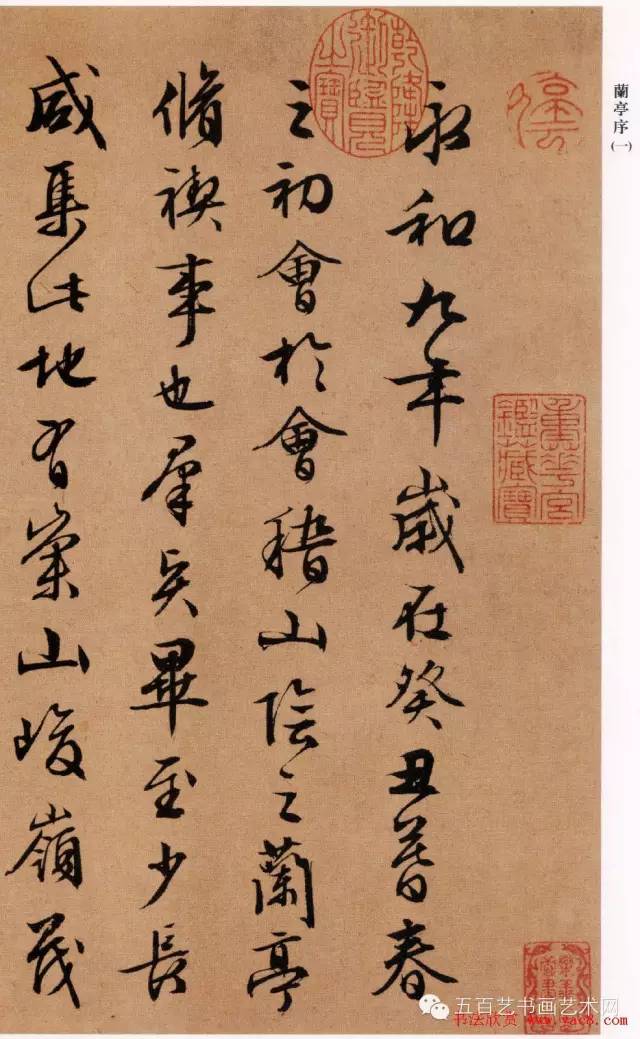 蘭亭序(一)
永和九年歲在癸丑暮春
之初會於會稽山陰之蘭亭
脩禊事也羣賢畢至少長
咸集此地有崇山峻嶺茂
乾隆御覽之寶
重華宮鑑藏寶
五百艺书画艺术网
书法欣赏 www.yac8.com